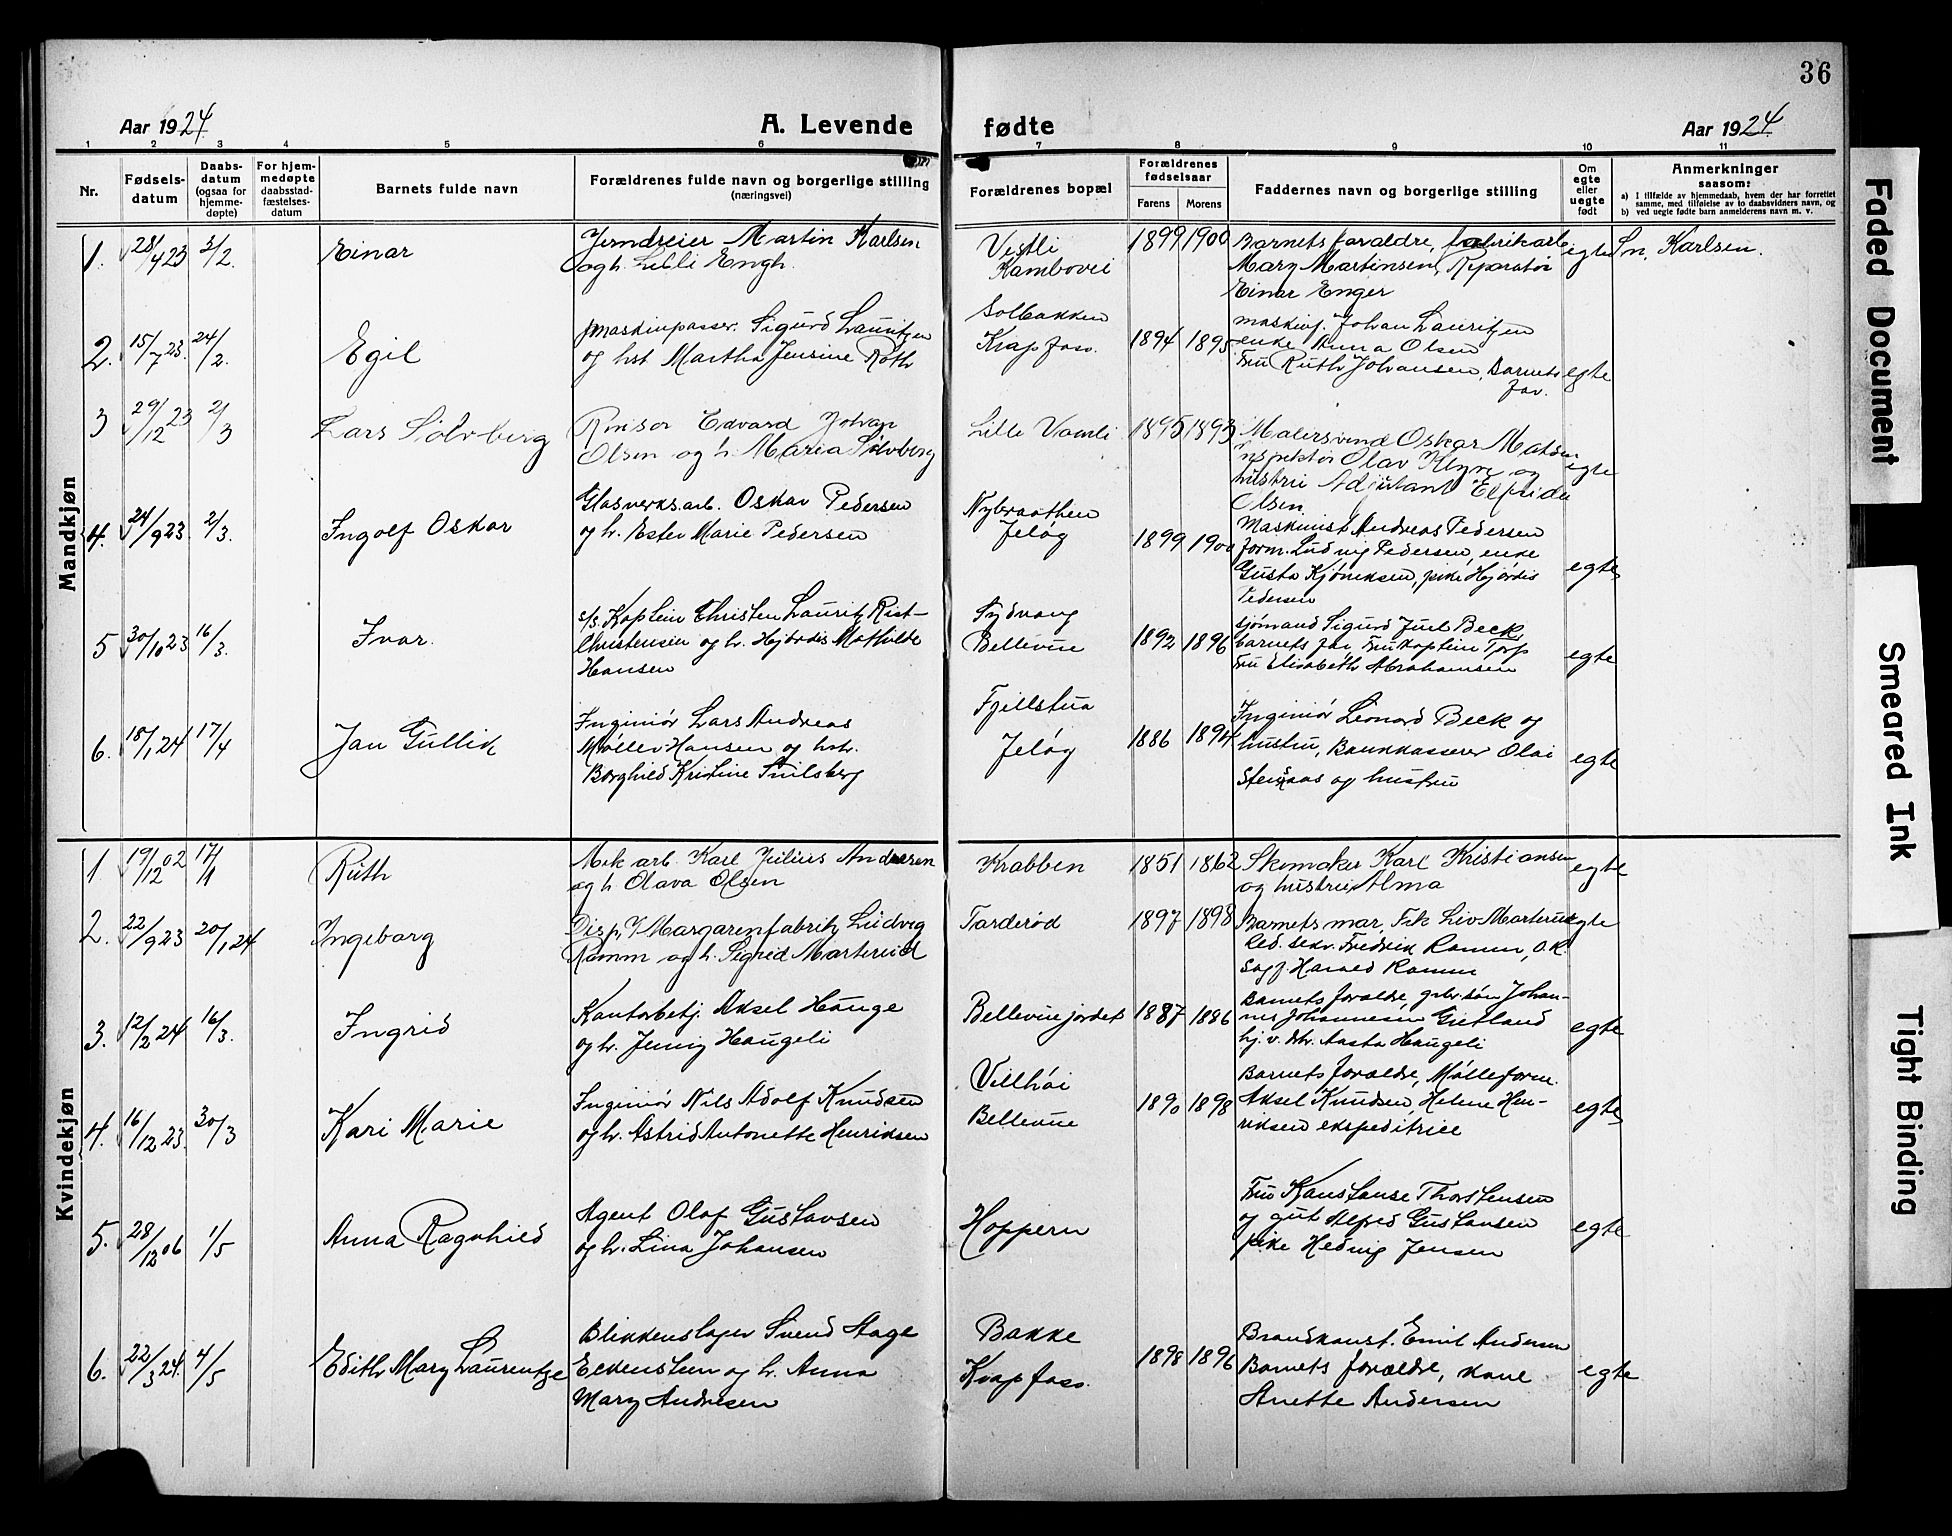 36
Aar 1924. A. Levende fødte Aar 1924.
1 2 3 4 5 6 7 8 9 10 11
Nr.
Fødsels-
datum
Daabs-
datum
(ogsaa for
hjemme-
døpte)
For hjem-
medøpte
daabsstad-
fæstelses-
datum
Barnets fulde navn
Forældrenes fulde navn og borgerlige stilling
(næringsvei)
Forældrenes bopæl
Forældrenes
fødselsaar
Farens Morens
Faddernes navn og borgerlige stilling
Om
egte
eller
uegte
født
Anmerkninger
saasom:
a) I tilfælde av hjemmedaab, hvem der har forrettet
samme, med tilføielse av to daabsvidners navn, og
b) ved uegte fødte barn anmelderens navn m. v.
Mandkjøn
1. 28/4 23 3/2. Einar
Jerndreier Martin Karlsen
og h. Lilli Engh.
Vestli
Kambovei
1899 1900
Barnets forældre, fabrikarb
Mary Martinsen, Reparatør
Einar Enger
egte
Sn. Karlsen.
2. 15/7 23. 24/2. Egil
maskinpasser. Sigurd Lauritzen
og hst Martha Jensine Roth
Solbakken
Krapfoss.
1894 1895
maskinf. Johan Lauritzen
enke Anna Olsen
Fru Ruth Johansen, Barnets
far.
egte
3 29/12 23 2/3 Lars Sølvberg
Edvard Johan
Olsen og h. Maria Sølvberg
Lille Vamli
1895 1893
Malersvend Oskar Matsen
Inspektør Olav Klyne og
hustru Adjutant Elfrida
Olsen.
egte
4. 24/9 23. 2/3. Ingolf Oskar
Glasverksarb. Oskar Pedersen
og h. Ester Marie Pedersen
Nybraathen
Jeløy
1899 1900
Maskinist Andreas Pedersen
form. Ludvig Pedersen, enke
Gusta Kjøniksen, pike Hjørdis
Pedersen
egte
5 30/10 23 16/3. Ivar.
s/s. Kaptein Christen Lauritz Rist-
Christensen og h. Hjørdis Mathilde
Hansen
Sydvang
Bellevue
1892 1896
sjömand Sigurd Juel Beck,
barnets far Fru kaptein Torp
Fru Elisabeth Abrahamsen
egte
6. 18/1 24 17/4 Jan Gullik
Inginiør Lars Andreas
Møller Hansen og hst.
Borghild Kristine Snilsberg
Fjellstua
Jeløy
1886 1894
Inginiør Leonard Beck og
hustru, Bankkasserer Olai
Stensaas og hustru
egte
Kvindekjøn
1. 19/12 02 17/1 Ruth
Mek arb. Karl Julius Andersen
og h. Olava Olsen
Krabben
1851 1862
Skomaker Karl Kristiansen
og hustru Alma
egte
2. 22/9 23 20/1 24 Ingeborg
Disp. v/ Margarinfabrik Ludvig
Ramm og h. Sigrid Marterud
Tarderød
1897 1898
Barnets mor, Frk Liv Marterud
Red. sekr. Fredrik Ramm, O.R.
Sagf. Harald Ramm
egte
3. 12/2 24 16/3. Ingrid
Kontorbetj. Aksel Hauge
og h. Jenny Haugeli
Bellevuejordet
1887 1886
Barnets forældre, gbr. søn Johan-
nes Johannesen Gretland
hj. v. dtr. Aasta Haugeli
egte
4. 16/12 23. 30/3 Kari Marie
Inginiør Nils Adolf Knudsen
og h. Astrid Antonette Henriksen
Villhøi
Bellevue
1890 1898
Barnets forældre, Mølleform.
Aksel Knudsen, Helene Hen-
riksen ekspeditrice
egte
5. 28/12 06 1/5 Anna Ragnhild
Agent Olaf Gustavsen
og h. Lina Johansen
Hoppern
Fru Kanstanse Thorstensen
og gut Alfred Gustavsen
pike Hedvig Jensen
egte
6. 22/3 24. 4/5 Edith Mary Laurentze
Blikkenslager Svend Aage
Eckenstein og h. Anna
Mary Andresen
Bakke
Krapfoss.
1898 1896
Brandkonst. Emil Andersen
Barnets forældre, kone
Anette Andersen
egte
Faded Document
Smeared Ink
Tight Binding